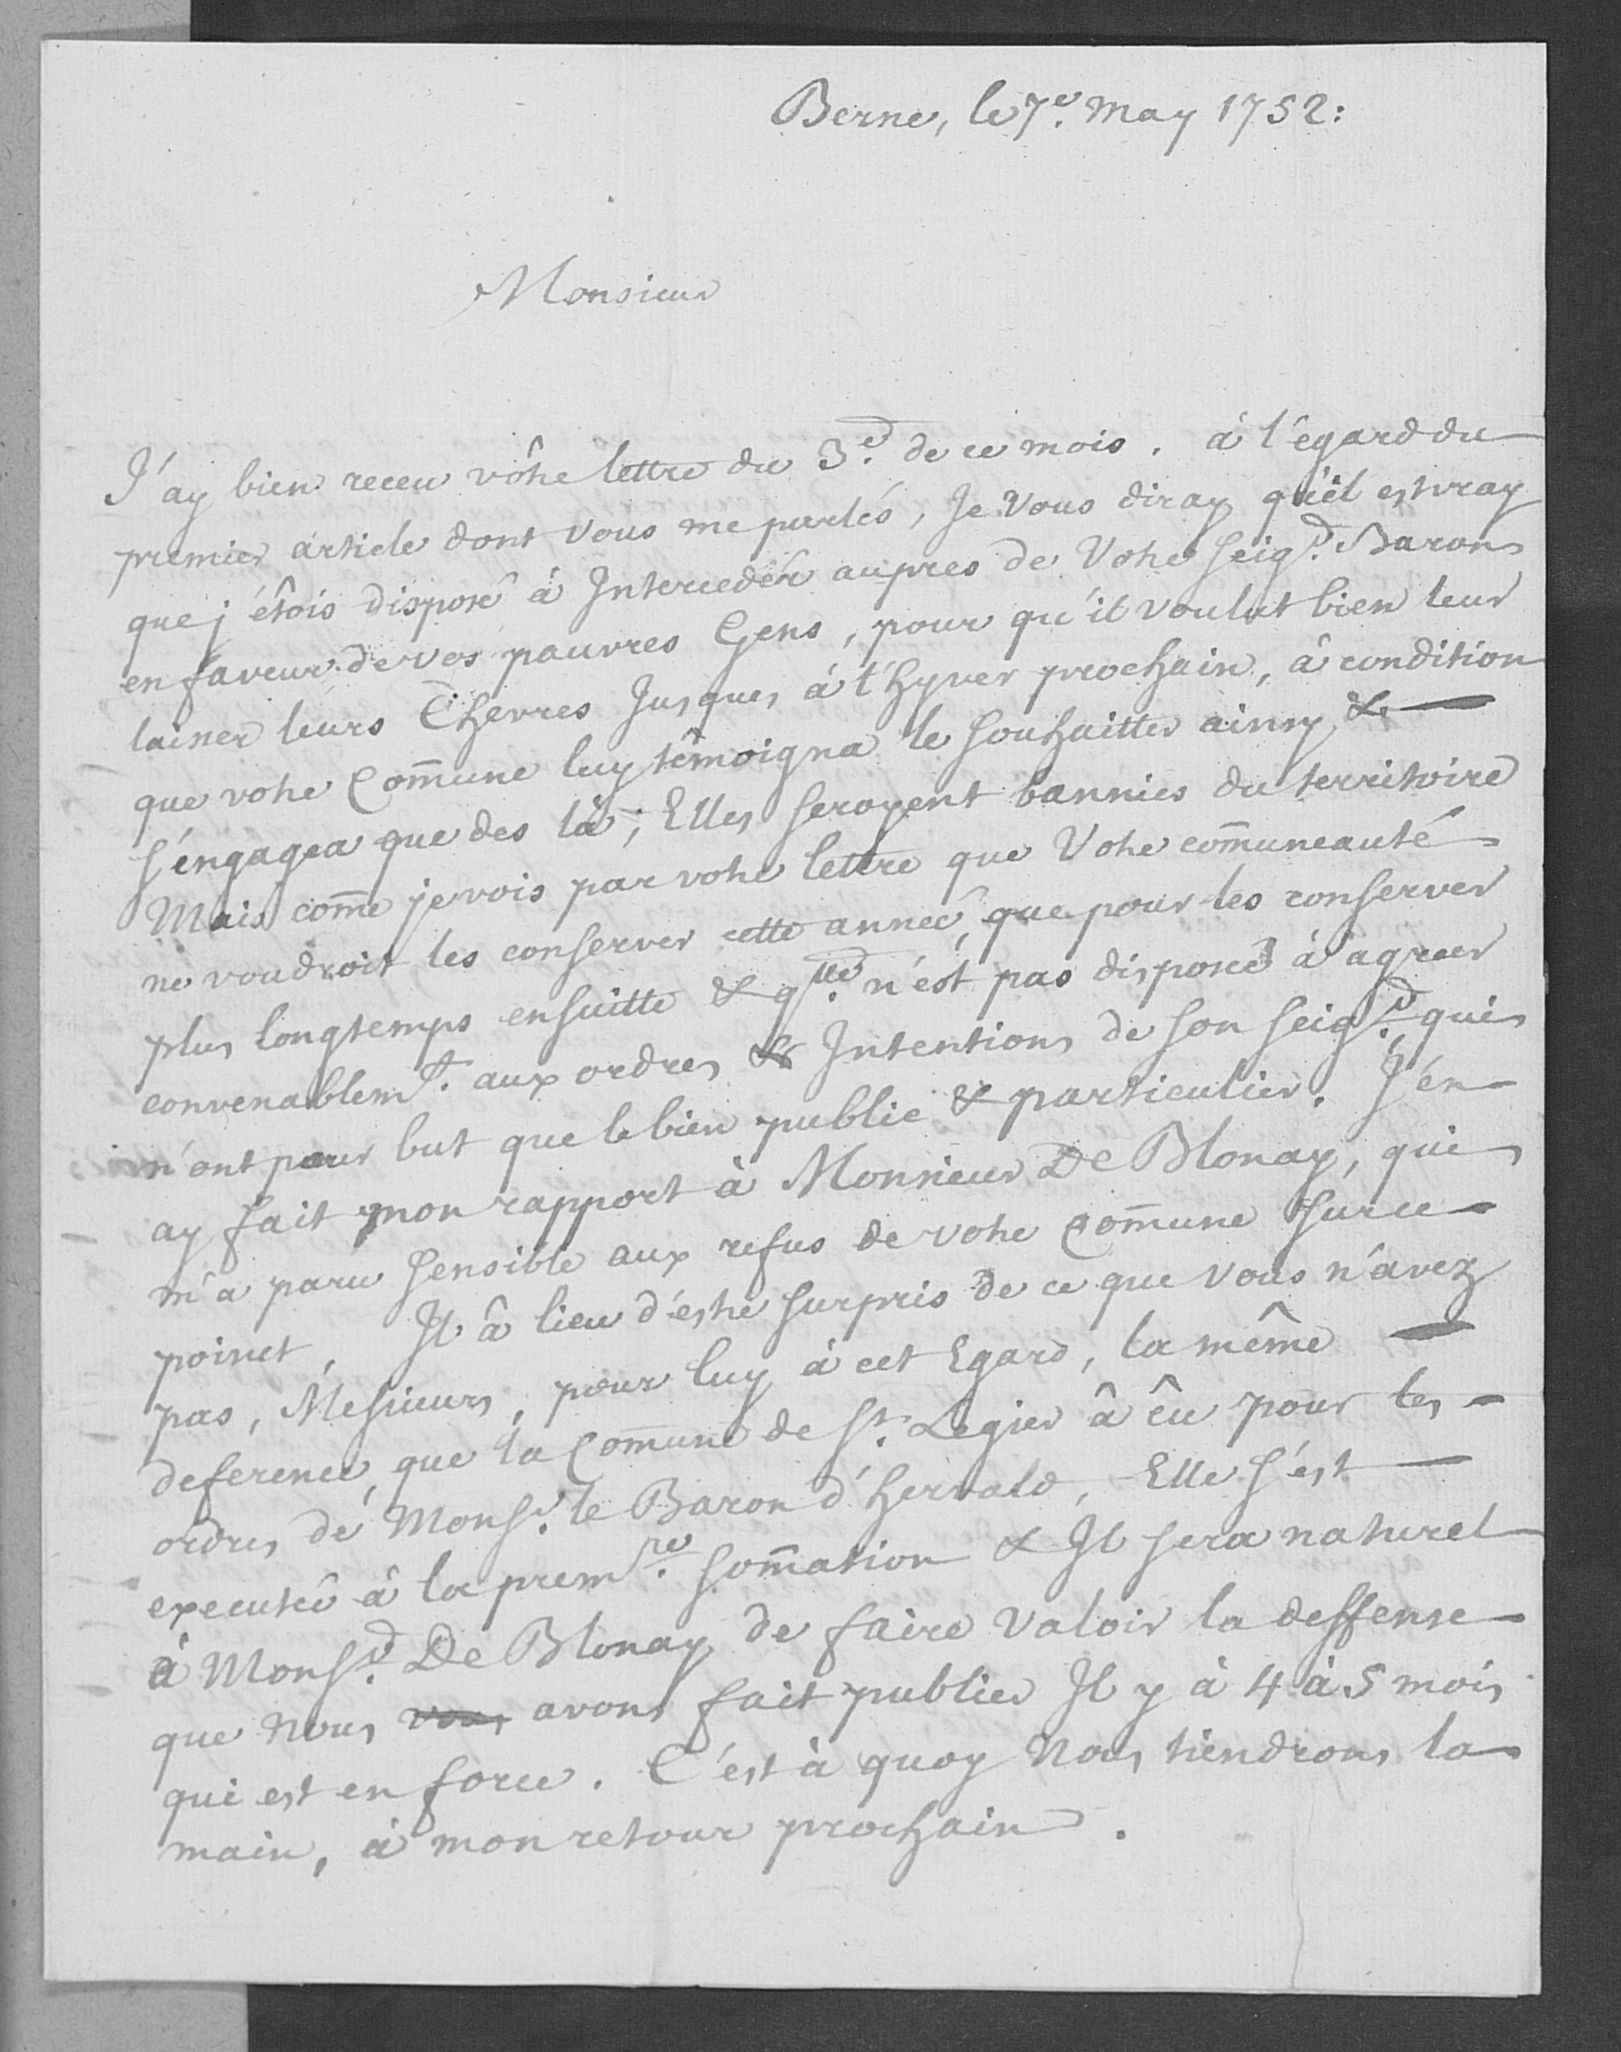 Berne, le 7.e May 1752:
Monsieur
J'ay bien receu vôtre lettre du 3.e de ce mois. à l'égard du
premier article dont vous me parlés, Je vous diray qu'il est vray
que j'étois disposé à Interceder aupres de Votre Seig.r Baron
en faveur de vos pauvres Gens, pour qu'il voulut bien leur
laisser leurs Chevres Jusques à l'hyver prochain, à condition
que votre Com̅une luy témoigna le souhaitter ainsy &
s'éngagea que des là, Elles seroyent bannies du territoire
Mais com̅e je vois par votre lettre que Votre com̅uneauté
ne voudroit les conserver cette année, que pour les conserver
plus longtemps ensuitte & q.lle n'est pas disposée à agreer
convenablem.t aux ordres & Intentions de son Seig.r, qui
n'ont pour but que le bien public & particulier. J'én
ay fait mon rapport à Monsieur De Blonay, qui
m'a paru sensible aux refus de votre com̅une sur ce
poinct, Il â lieu d'éstre surpris de ce que vous n'avez
pas, Messieurs, pour luy à cet Egard, la même
deference, que la Comune de S.t Legier â êu pour les
ordres de Mons.r le Baron d'hervald, Elle s'ést
executée à la prem.re som̅ation & Il sera naturel
à Mons.r De Blonay de faire valoir la deffense
que nous vous avons fait publier Il y à 4 à 5 mois
qui est en force. C'ést à quoy nous tiendrons la
main, à mon retour prochain.